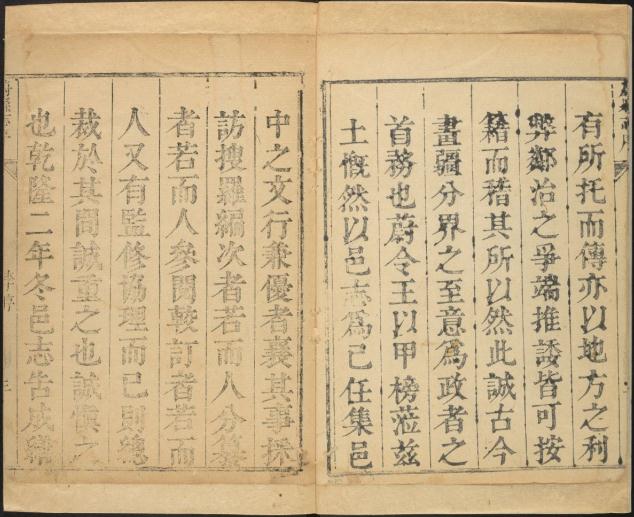 有所托而傳亦以地方之利
弊鄰治之爭端推諉皆可按
籍而稽其所以然此誠古今
畫疆分界之至意為政者之
首務也蔚令王以甲榜蒞茲
土慨然以邑志為己任集邑
中之文行兼優者襄其事採
訪搜羅編次者若而人分纂
者若而人參閱較訂者若而
人又有監修協理而已則總
裁於其間誠重之也誠慎之
也乾隆二年冬邑志告成繕